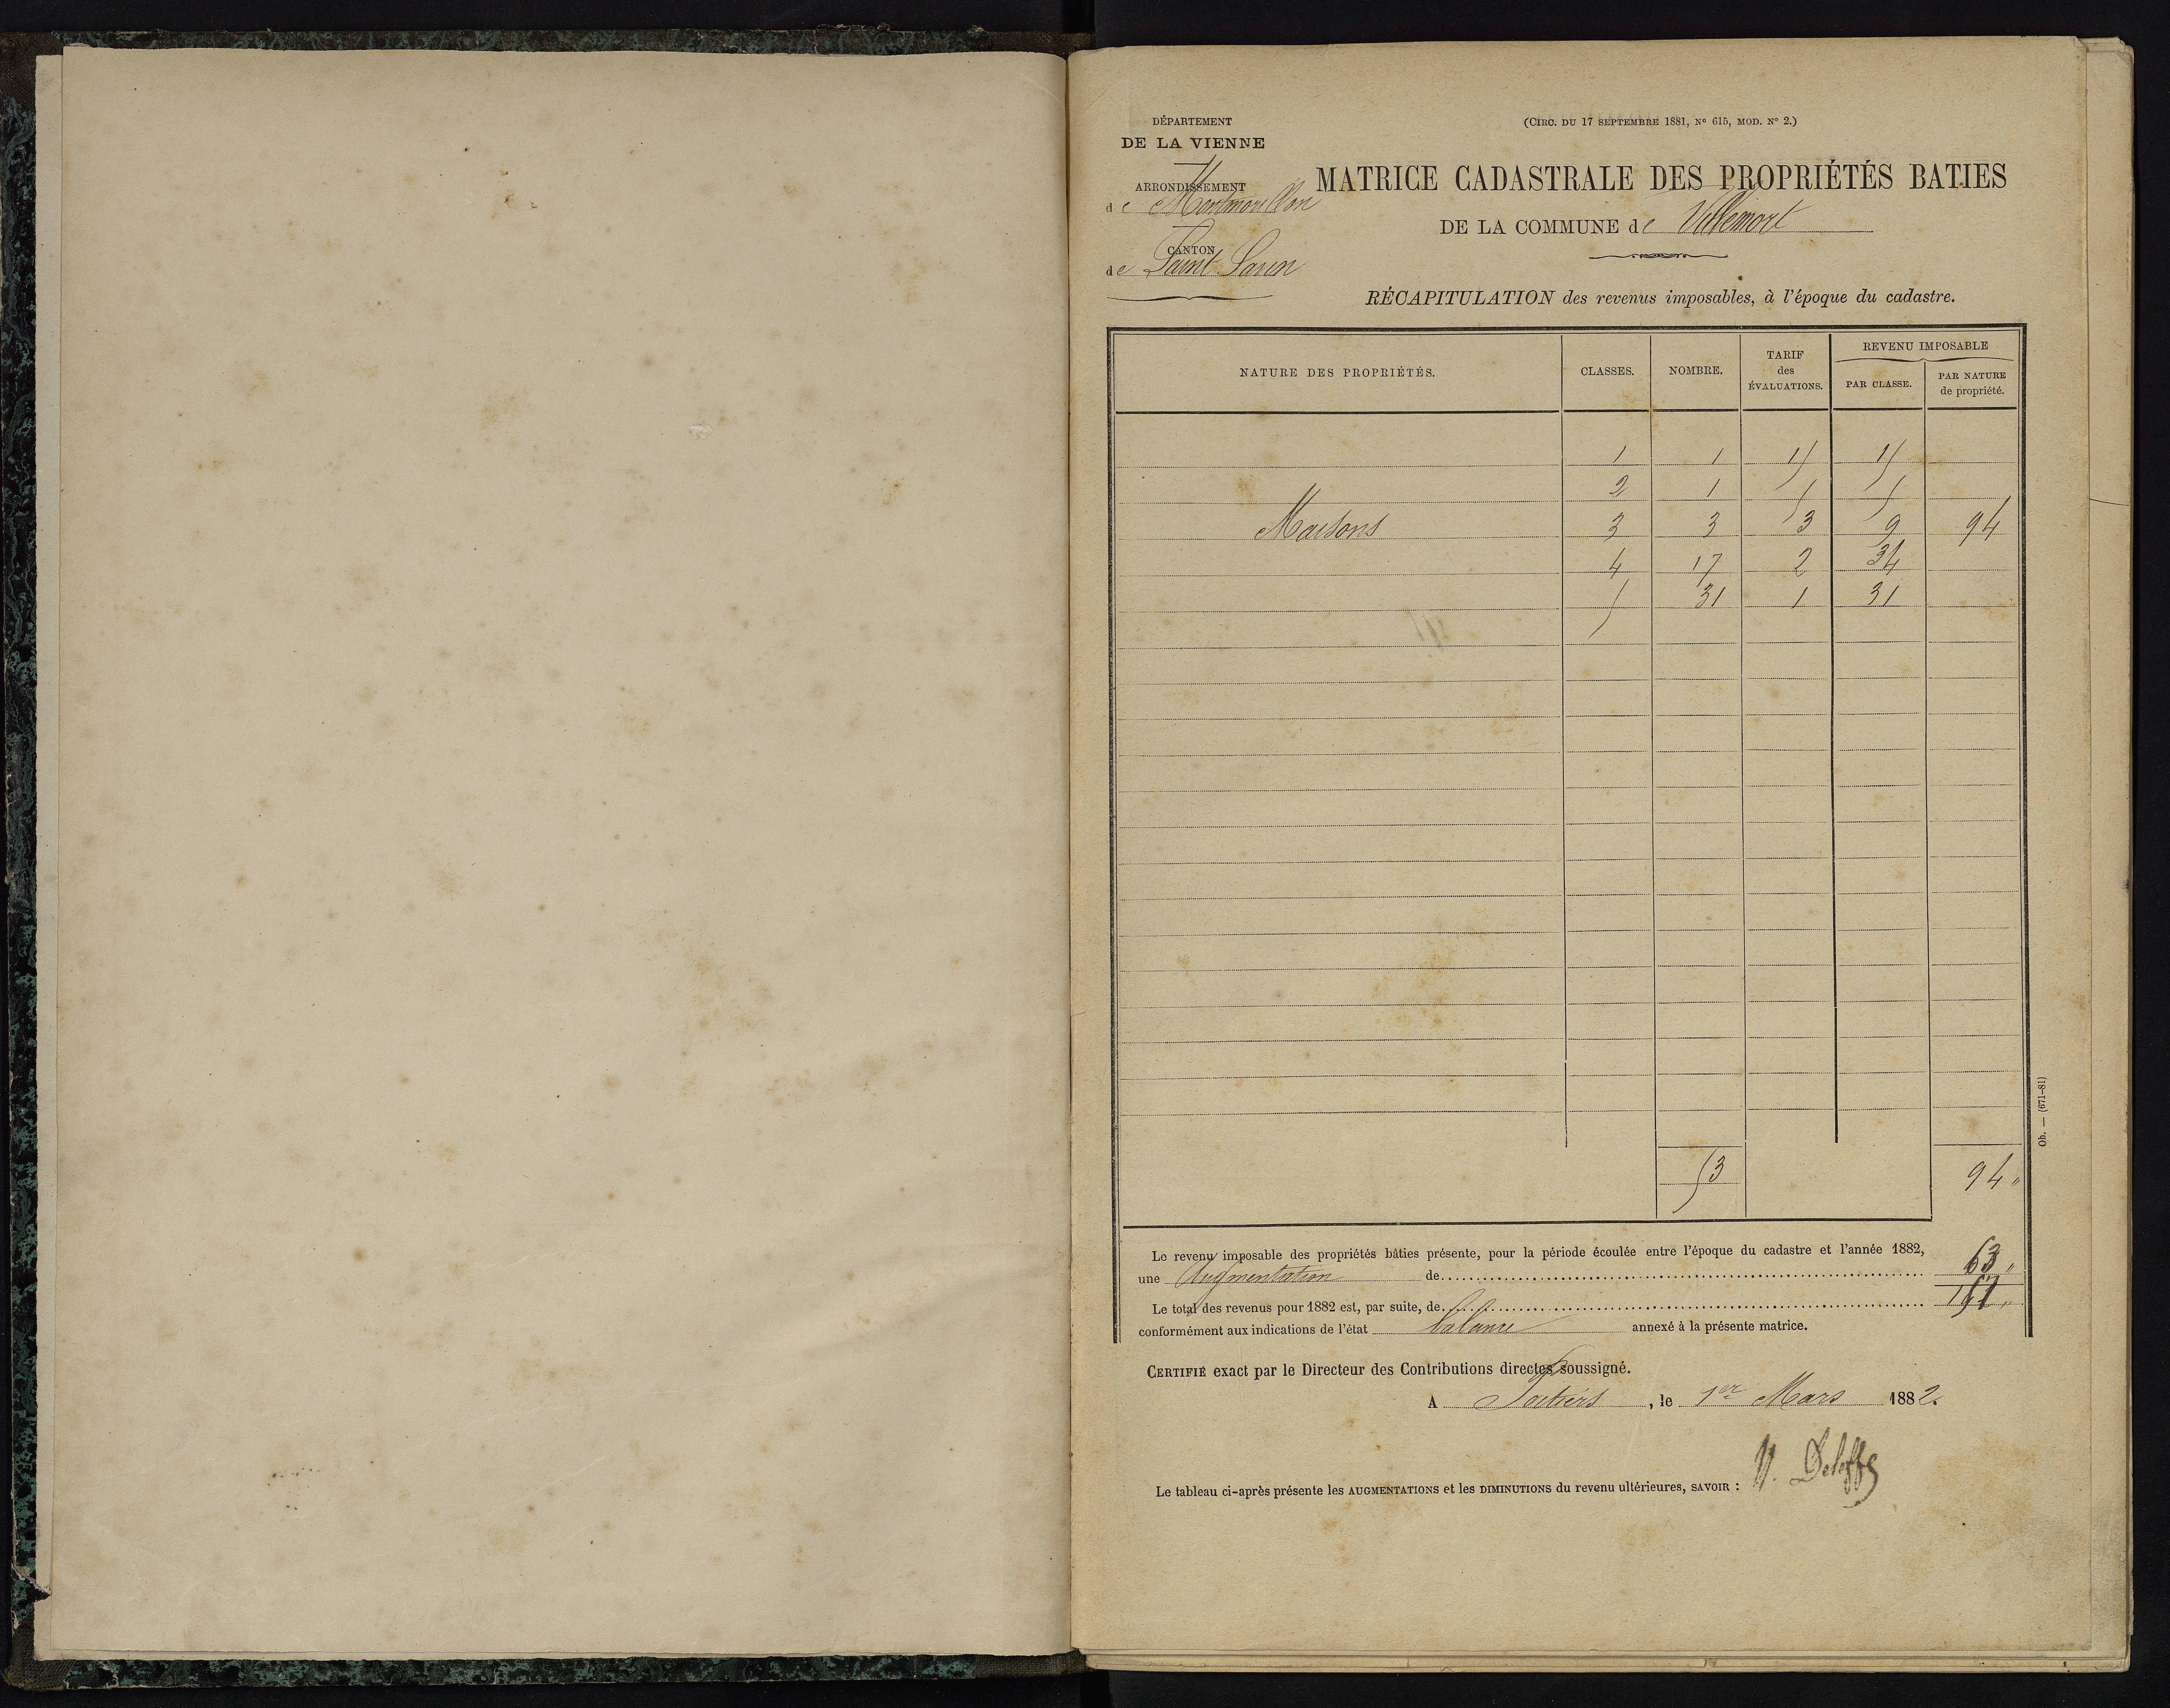 DÉPARTEMENT
DE LA VIENNE
ARRONDISSEMENT
de Montmorillon
CANTON
de Saint Savin
(CIRC. DU 17 SEPTEMBRE 1881, Nº 615, MOD. Nº 2.)
MATRICE CADASTRALE DES PROPRIÉTÉS BATIES
DE LA COMMUNE de Villemort
RÉCAPITULATION des revenus imposables, à l'époque du cadastre.
NATURE DES PROPRIÉTÉS. CLASSES. NOMBRE. TARIF des ÉVALUATIONS. REVENU IMPOSABLE
PAR CLASSE. PAR NATURE de propriété.
1 1 15 15
2 1 5 5
Maisons 3 3 3 9 94
4 17 2 34
5 31 1 31
53 94 "
Le revenu imposable des propriétés bâties présente, pour la période écoulée entre l'époque du cadastre et l'année 1882,
une Augmentation de 63 "
Le total des revenus pour 1882 est, par suite, de 157 "
conformément aux indications de l'état balance annexé à la présente matrice.
CERTIFIÉ exact par le Directeur des Contributions directes soussigné.
A Poitiers, le 1er Mars 1882.
Le tableau ci-après présente les AUGMENTATIONS et les DIMINUTIONS du revenu ultérieures, SAVOIR :
Ob. — (671-81)